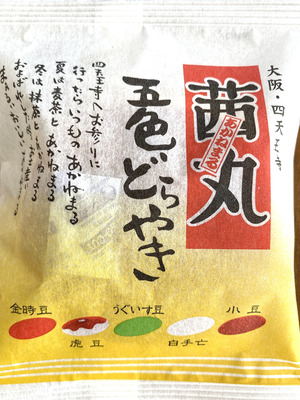 大阪・四天王寺
茜丸
あかねまる
五色どらやき
四天王寺へお参りに
行ったらいつものあかねまる
夏は麦茶と あかねまる
冬は抹茶と あかねまる
金時豆
虎豆
うぐいす豆
白手亡
小豆